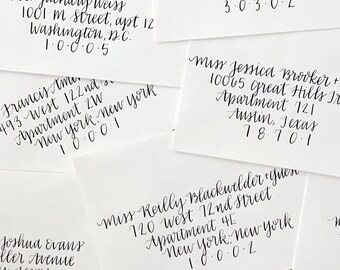 Weiss
1001 M Street, apt 12
Washington, D.C.
1.0.0.5
3.0.3.0.2
Miss Jessica Brooker +
10065 Great Hills Tr
Apartment 121
Austin, Texas
7.8.7.0.1
Francis Amer
493 West 122nd St
Apartment 2W
New York, New York
1.0.0.0.1
Miss Reilly Blackwelder + Guest
720 West 72nd Street
Apartment 4E
New York, New York
1.0.0.0.2
Joshua Evans
ller Avenue